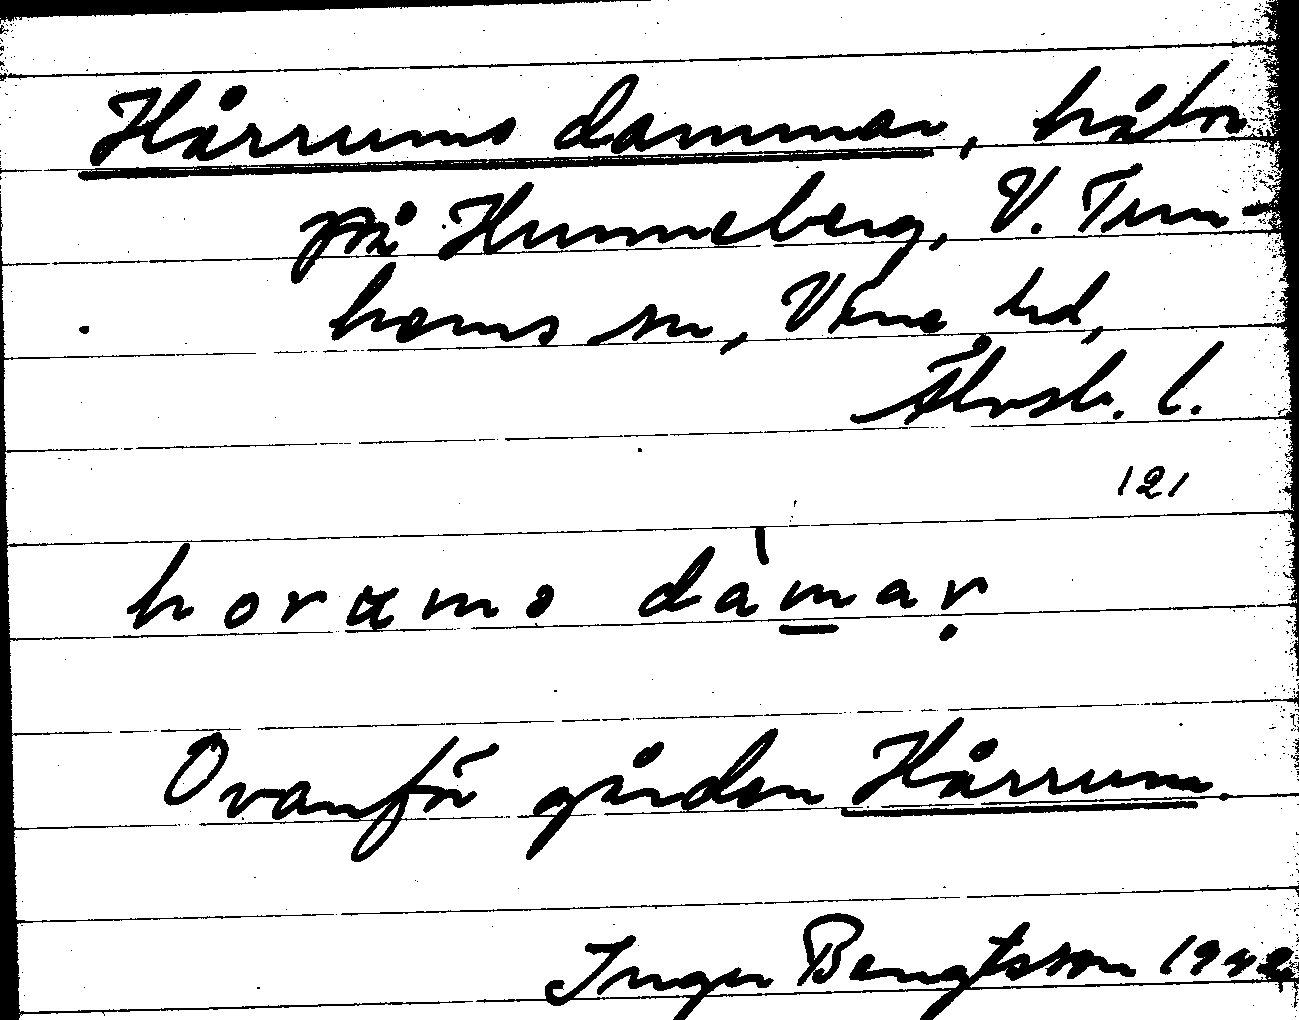 Hårrums dammar, håln
på Hunneberg, V. Tun-
hems sn, Väne hd,
Älvsb. l.
121
horums dàmar
Ovanför gården Hårrum.
Inger Bengtsson 1942